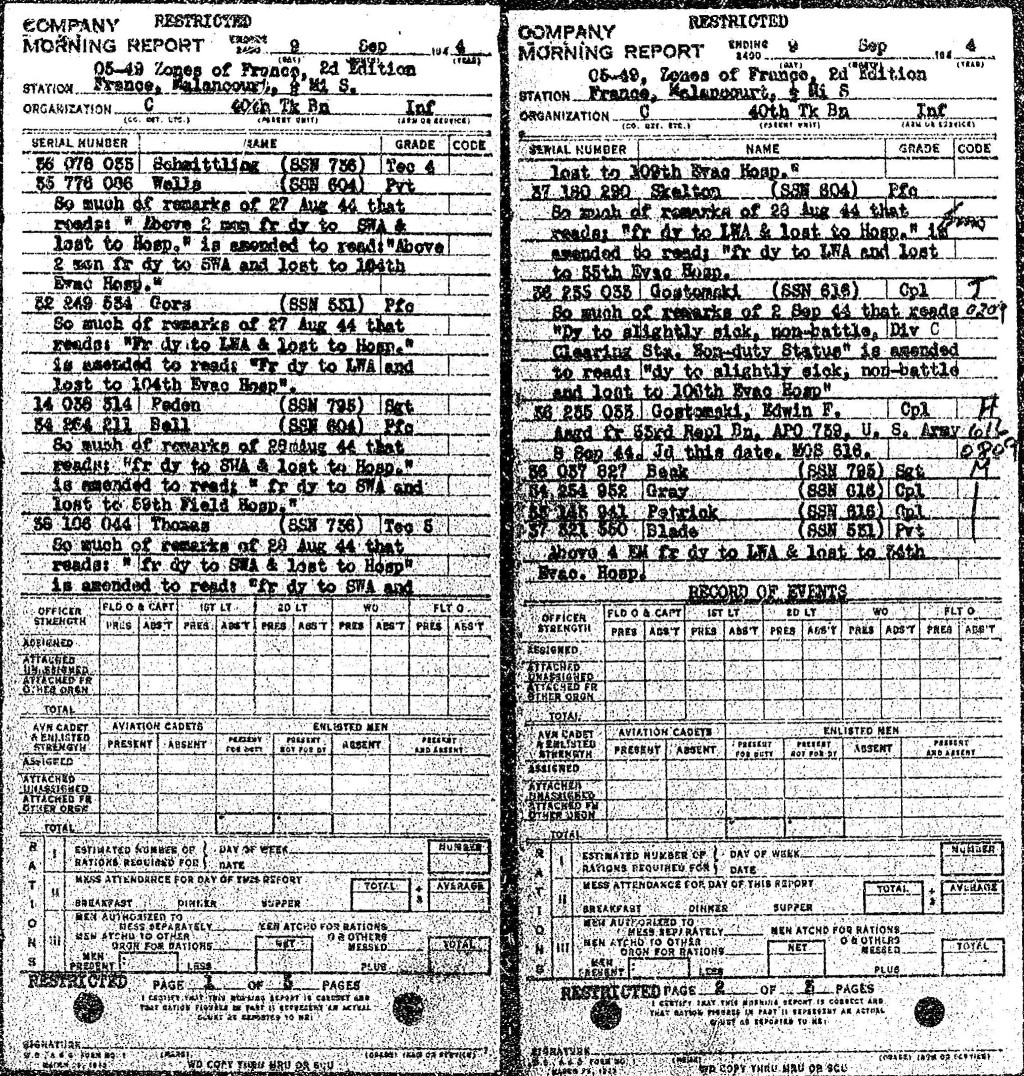 RESTRICTED
COMPANY
MORNING REPORT ENDING 2400 9 Sep 194 4
(DAY) (MONTH) (YEAR)
05-49 Zones of France, 2d Edition
STATION France, Malancourt, ½ Mi S.
ORGANIZATION C 40th Tk Bn Inf
(CO. DET. ETC.) (PARENT UNIT) (ARM OR SERVICE)
SERIAL NUMBER NAME GRADE CODE
36 076 033 Schmittling (SSN 736) Tec 4
35 776 086 Wells (SSN 604) Pvt
So much of remarks of 27 Aug 44 that
reads: " Above 2 men fr dy to SWA &
lost to Hosp." is amended to read:"Above
2 men fr dy to SWA and lost to 104th
Evac Hosp."
32 249 534 Gors (SSN 531) Pfc
So much of remarks of 27 Aug 44 that
reads: "Fr dy to LWA & lost to Hosp."
is amended to read: "Fr dy to LWA and
lost to 104th Evac Hosp".
14 038 314 Peden (SSN 795) Sgt
34 264 211 Bell (SSN 604) Pfc
So much of remarks of 28 Aug 44 that
reads: "fr dy to SWA & lost to Hosp."
is amended to read: " fr dy to SWA and
lost to 59th Field Hosp."
38 106 044 Thomas (SSN 736) Tec 5
So much of remarks of 28 Aug 44 that
reads: " fr dy to SWA & lost to Hosp"
is amended to read: "fr dy to SWA and
OFFICER STRENGTH FLD O & CAPT 1ST LT 2D LT WO FLT O
PRES ABS'T PRES ABS'T PRES ABS'T PRES ABS'T PRES ABS'T
ASSIGNED
ATTACHED UNASSIGNED
ATTACHED FR OTHER ORGN
TOTAL
AVN CADET & ENLISTED STRENGTH AVIATION CADETS ENLISTED MEN
PRESENT ABSENT PRESENT FOR DUTY PRESENT NOT FOR DY ABSENT PRESENT AND ABSENT
ASSIGNED
ATTACHED UNASSIGNED
ATTACHED FR OTHER ORGN
TOTAL
RATIONS
I ESTIMATED NUMBER OF RATIONS REQUIRED FOR DAY OF WEEK DATE NUMBER
II MESS ATTENDANCE FOR DAY OF THIS REPORT TOTAL ÷ 3 AVERAGE
BREAKFAST DINNER SUPPER
III MEN AUTHORIZED TO MESS SEPARATELY MEN ATCHD FOR RATIONS
MEN ATCHD TO OTHER ORGN FOR RATIONS O & OTHERS MESSED
MEN PRESENT LESS NET PLUS TOTAL
RESTRICTED PAGE 1 OF 3 PAGES
I CERTIFY THAT THIS MORNING REPORT IS CORRECT AND
THAT RATION FIGURES IN PART II REPRESENT AN ACTUAL
COUNT AS REPORTED TO ME:
SIGNATURE
W.D., A.G.O. FORM NO. 1 (NAME) (GRADE) (ARM OR SERVICE)
WD COPY THRU MRU OR SCU
RESTRICTED
COMPANY
MORNING REPORT ENDING 2400 9 Sep 194 4
(DAY) (MONTH) (YEAR)
05-49, Zones of France, 2d Edition
STATION France, Malancourt, ½ Mi S
ORGANIZATION C 40th Tk Bn Inf
(CO. DET. ETC.) (PARENT UNIT) (ARM OR SERVICE)
SERIAL NUMBER NAME GRADE CODE
lost to 109th Evac Hosp."
37 180 290 Skelton (SSN 604) Pfc
So much of remarks of 28 Aug 44 that
reads: "fr dy to LWA & lost to Hosp." is
amended to read: "fr dy to LWA and lost
to 35th Evac Hosp.
36 235 033 Gostomski (SSN 616) Cpl
So much of remarks of 2 Sep 44 that reads 0209
"Dy to slightly sick, non-battle, Div C
Clearing Sta. Non-duty Status" is amended
to read: "dy to slightly sick, non-battle
and lost to 106th Evac Hosp"
36 235 033 Gostomski, Edwin F. Cpl H
Asgd fr 53rd Repl Bn, APO 759, U. S. Army 616
8 Sep 44. Jd this date. MOS 616. 0809
36 037 827 Beck (SSN 795) Sgt M
34 254 952 Gray (SSN 616) Cpl
35 145 941 Patrick (SSN 616) Cpl
37 321 350 Blade (SSN 531) Pvt
Above 4 EM fr dy to LWA & lost to 34th
Evac. Hosp.
RECORD OF EVENTS
OFFICER STRENGTH FLD O & CAPT 1ST LT 2D LT WO FLT O
PRES ABS'T PRES ABS'T PRES ABS'T PRES ABS'T PRES ABS'T
ASSIGNED
ATTACHED UNASSIGNED
ATTACHED FR OTHER ORGN
TOTAL
AVN CADET & ENLISTED STRENGTH AVIATION CADETS ENLISTED MEN
PRESENT ABSENT PRESENT FOR DUTY PRESENT NOT FOR DY ABSENT PRESENT AND ABSENT
ASSIGNED
ATTACHED UNASSIGNED
ATTACHED FR OTHER ORGN
TOTAL
RATIONS
I ESTIMATED NUMBER OF RATIONS REQUIRED FOR DAY OF WEEK DATE NUMBER
II MESS ATTENDANCE FOR DAY OF THIS REPORT TOTAL ÷ 3 AVERAGE
BREAKFAST DINNER SUPPER
III MEN AUTHORIZED TO MESS SEPARATELY MEN ATCHD FOR RATIONS
MEN ATCHD TO OTHER ORGN FOR RATIONS O & OTHERS MESSED
MEN PRESENT LESS NET PLUS TOTAL
RESTRICTED PAGE 2 OF 3 PAGES
I CERTIFY THAT THIS MORNING REPORT IS CORRECT AND
THAT RATION FIGURES IN PART II REPRESENT AN ACTUAL
COUNT AS REPORTED TO ME:
SIGNATURE
W.D., A.G.O. FORM NO. 1 (NAME) (GRADE) (ARM OR SERVICE)
WD COPY THRU MRU OR SCU